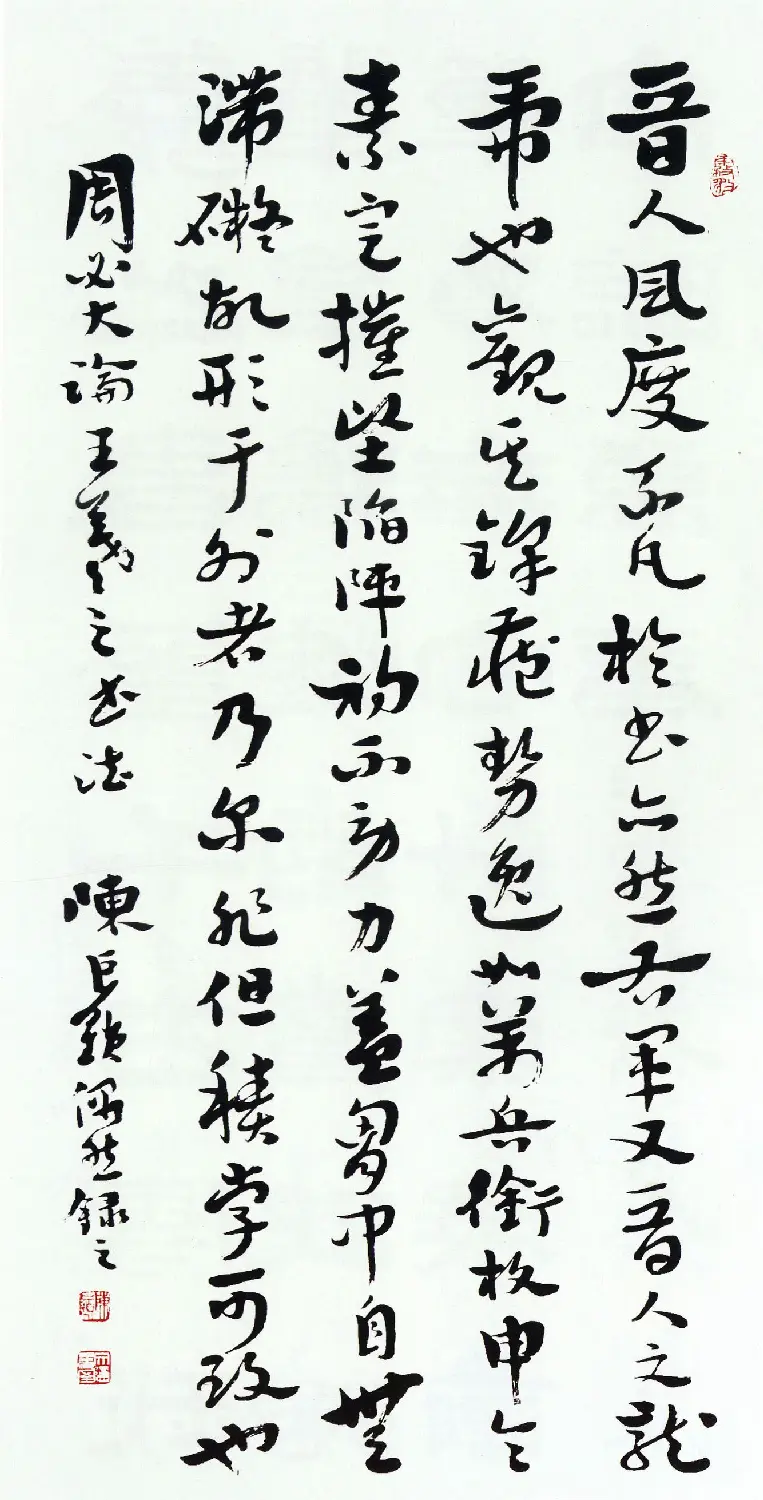 晋人風度不凡於書亦然右軍又晋人文龍
虎也觀其鋒藏勢逸如萬兵銜枚申令
素定摧堅陷陣初不勞力蓋胸中自無
滯礙故形于外者乃尔非但積學可致也
周必大論王羲之書法 陳巨鎖然録之